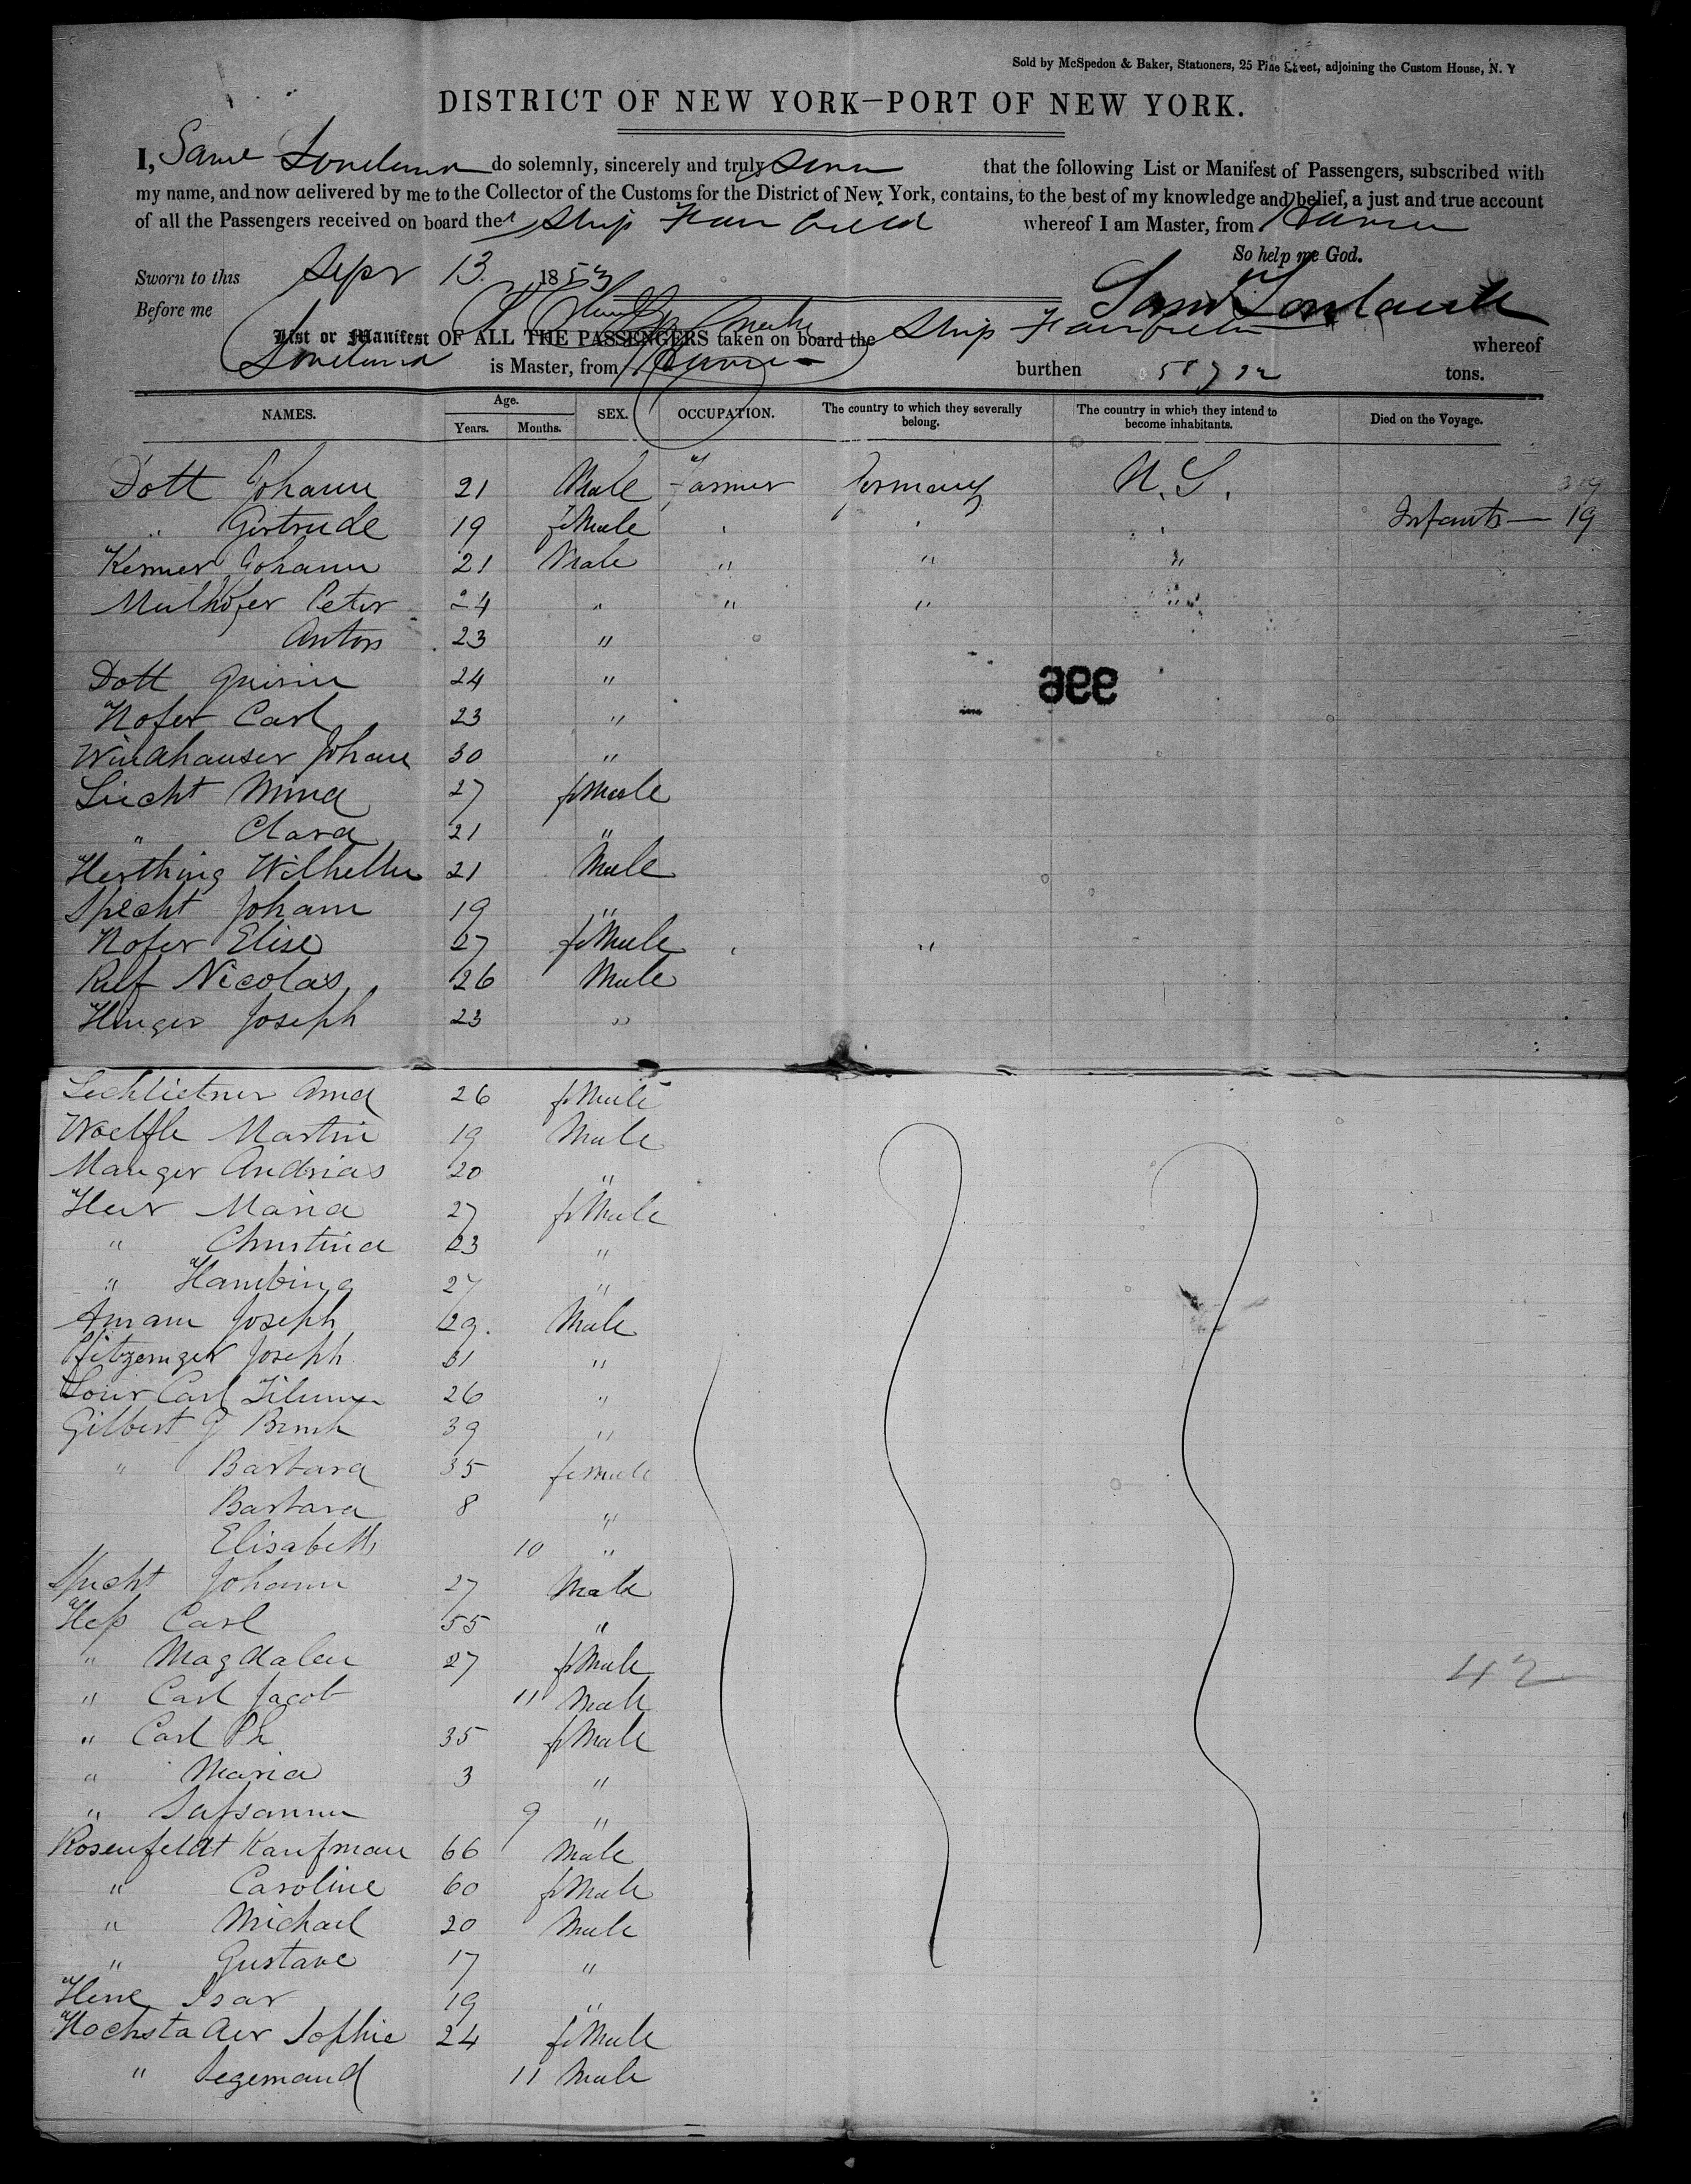 Sold by McSpedon & Baker, Stationers, 25 Pine Street, adjoining the Custom House, N. Y
DISTRICT OF NEW YORK—PORT OF NEW YORK.
I, Saml Loveland do solemnly, sincerely and truly swear that the following List or Manifest of Passengers, subscribed with
my name, and now delivered by me to the Collector of the Customs for the District of New York, contains, to the best of my knowledge and belief, a just and true account
of all the Passengers received on board the Ship Fairfield whereof I am Master, from Havre
So help me God.
Sworn to this Sepr 13 1853
Saml Loveland
Before me
List or Manifest OF ALL THE PASSENGERS taken on board the Ship Fairfield whereof
Loveland is Master, from Havre burthen tons.
NAMES. Age. Years. Months. SEX. OCCUPATION. The country to which they severally belong. The country in which they intend to become inhabitants. Died on the Voyage.
Dott Johann 21 Male Farmer Germany U.S.
" Gertrude 19 feMale Infants — 19
Kermer Johann 21 Male " " "
Mulhofer Peter 24 " " " "
Anton 23 "
Dott Quirin 24 "
399
Hofer Carl 23 "
Windhauser Johann 30 "
Liecht Mina 27 feMale
" Clara 21 "
Herthing Wilhelm 21 Male
Specht Johann 19 "
Hofer Elise 27 feMale "
Ruf Nicolas 26 Male
Hinger Joseph 23 "
Lechlietner Anna 26 feMale
Woelfle Martin 19 Male
Manger Andrias 20 "
Herr Maria 27 feMale
" Christina 23 "
" 27 "
Amann Joseph 29. Male
Joseph 31 "
Carl 26 "
Gilbert J 39 "
" Barbara 35 female
Barbara 8 "
Elisabeth 10 "
Specht Johann 27 Male
Heß Carl 55 "
" Magdalen 27 feMale
" Carl Jacob 11 Male
42
" Carl Ph 35 feMale
" Maria 3 "
" 9 "
Rosenfeldt Kaufman 66 Male
" Caroline 60 feMale
" Michael 20 Male
" Gustave 17 "
Isar 19 "
Hochstader Sophie 24 feMale
" Segemand 11 Male